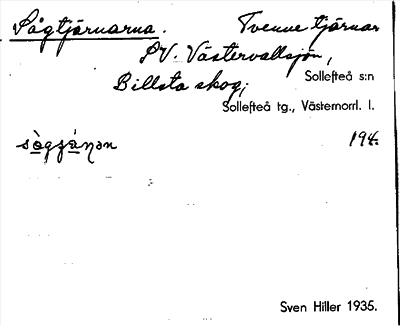 Sågtjärnarna. Tvenne tjärnar
SV. Västervallsjön,
Billsta skog; Sollefteå s:n
Sollefteå tg., Västernorrl. l.
194.
Sven Hiller 1935.